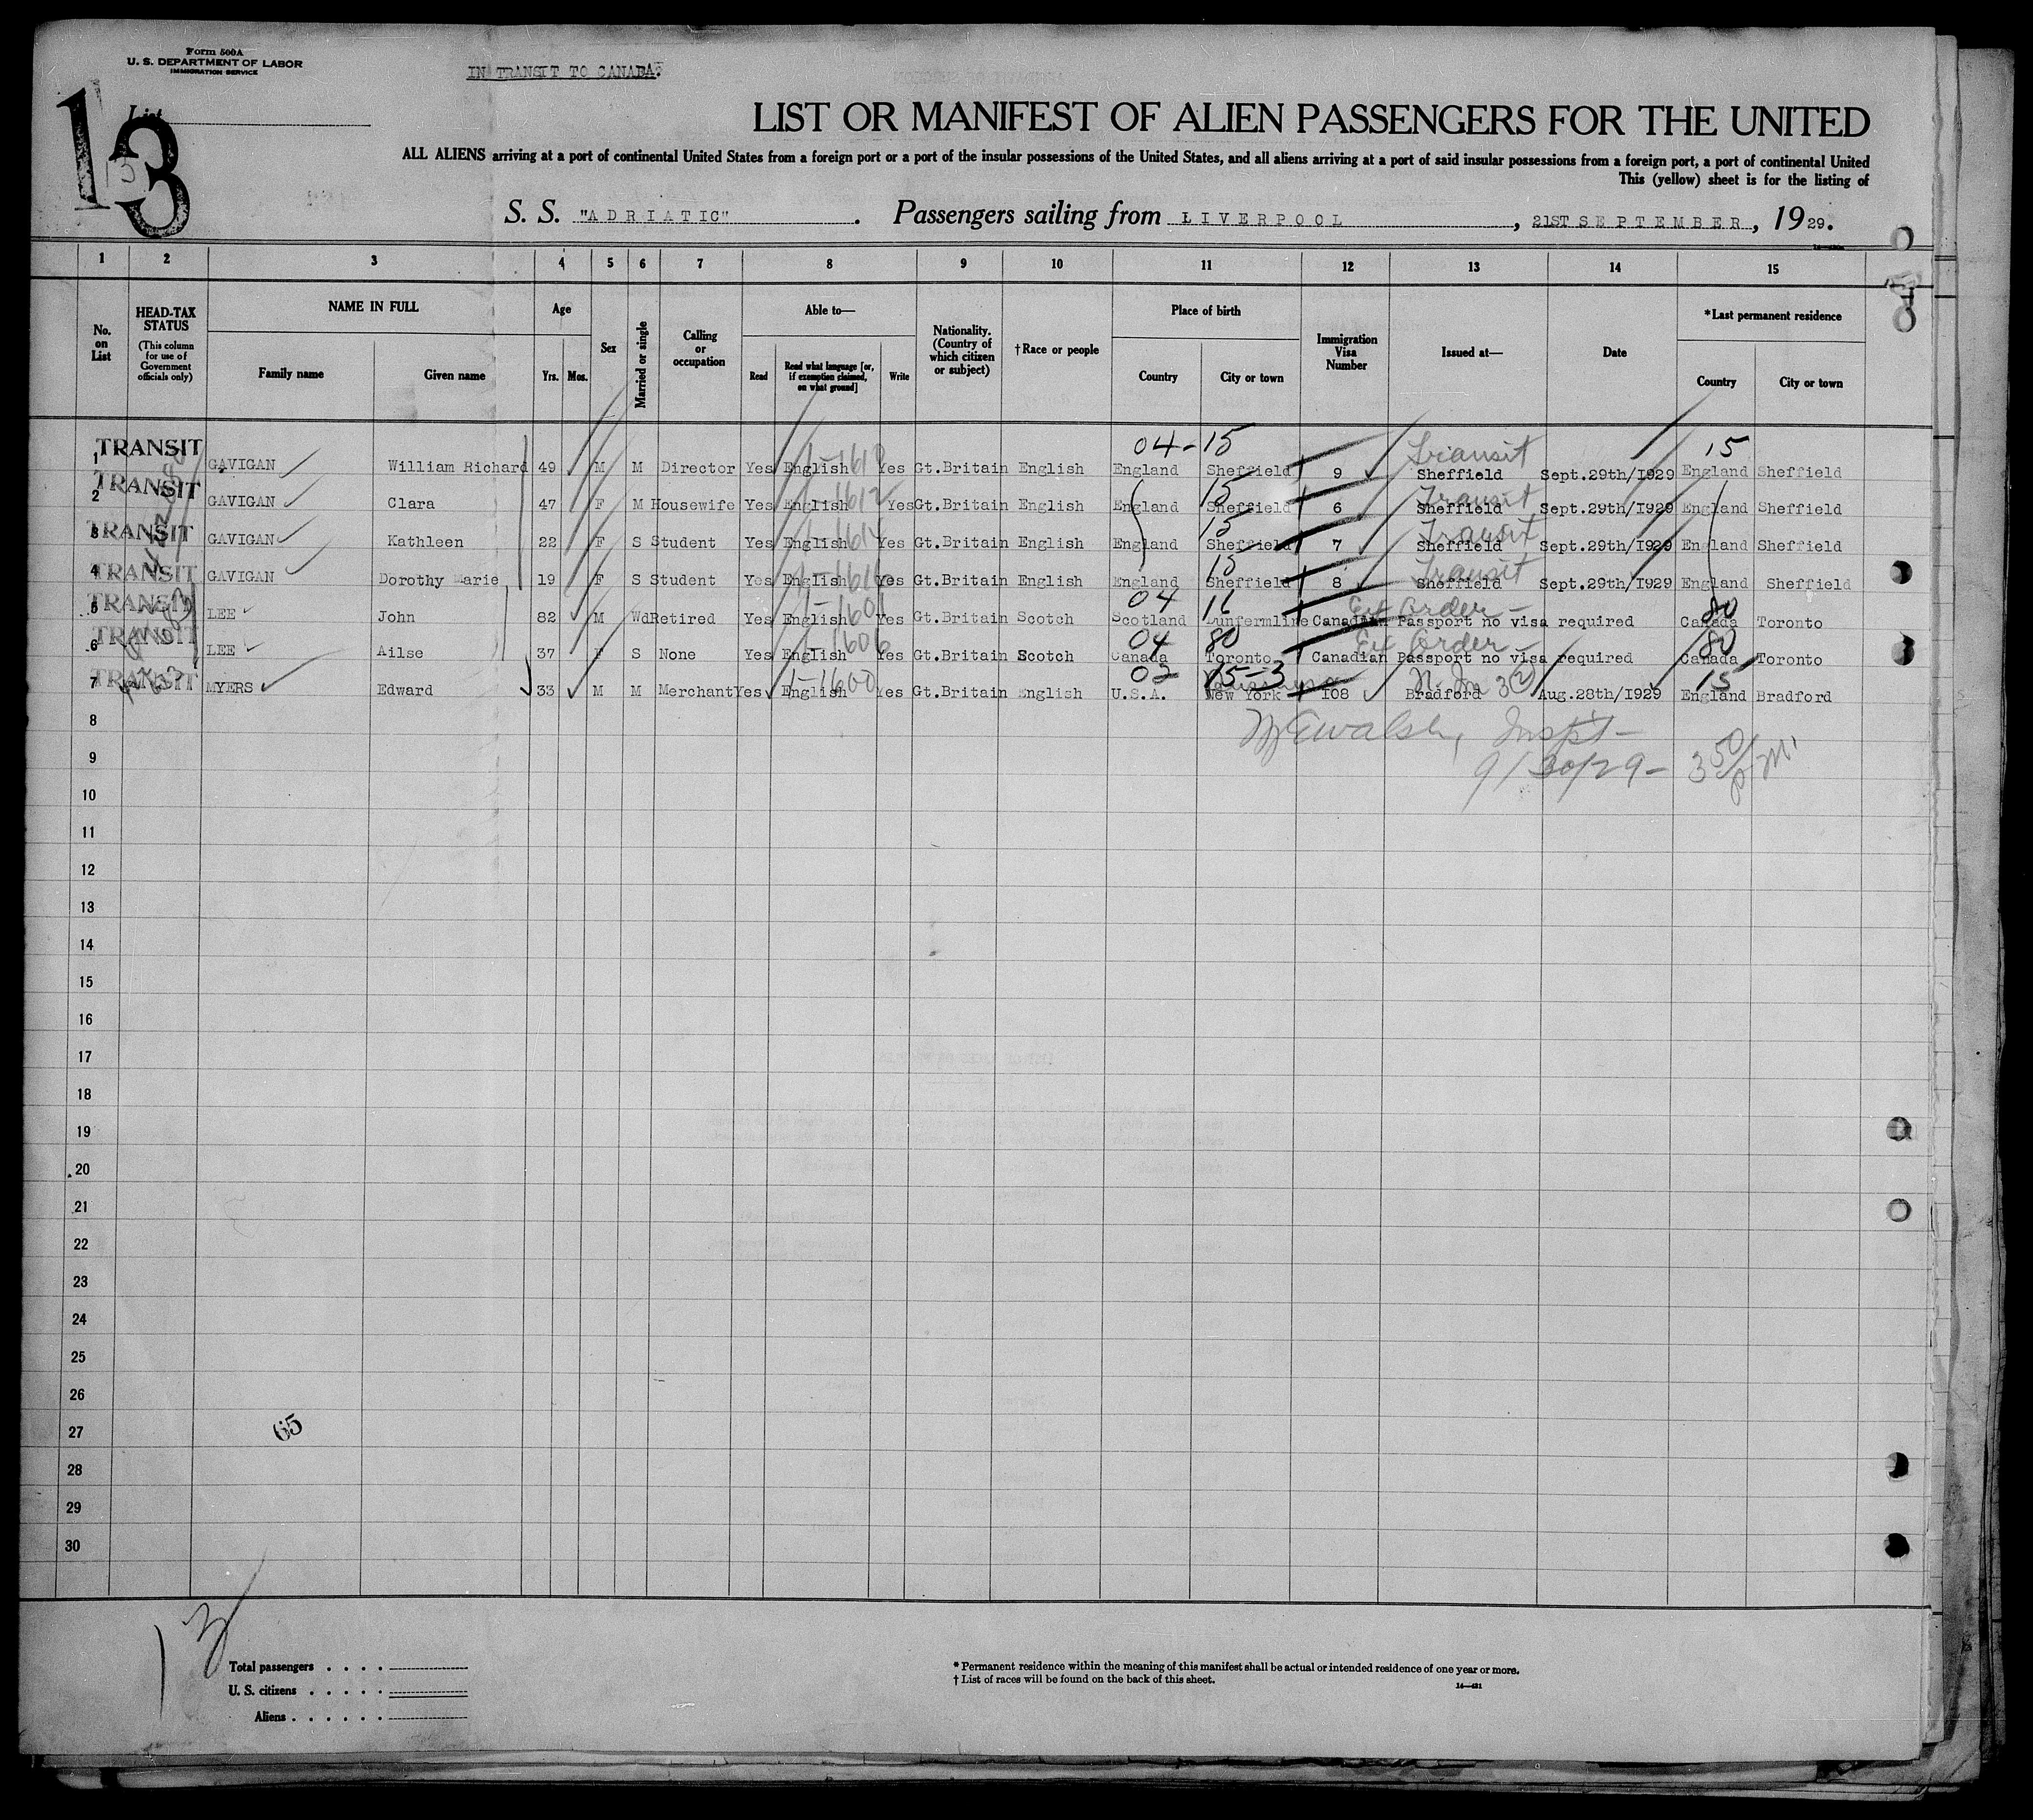 Form 500A
U. S. DEPARTMENT OF LABOR
IMMIGRATION SERVICE
IN TRANSIT TO CANADA.
List
13
LIST OR MANIFEST OF ALIEN PASSENGERS FOR THE UNITED
ALL ALIENS arriving at a port of continental United States from a foreign port or a port of the insular possessions of the United States, and all aliens arriving at a port of said insular possessions from a foreign port, a port of continental United
This (yellow) sheet is for the listing of
S. S. "ADRIATIC". Passengers sailing from LIVERPOOL, 21ST SEPTEMBER, 1929.
1 2 3 4 5 6 7 8 9 10 11 12 13 14 15
No. on List
HEAD-TAX STATUS (This column for use of Government officials only)
NAME IN FULL Family name Given name
Age Yrs. Mos.
Sex
Married or single
Calling or occupation
Able to— Read Read what language [or, if exemption claimed, on what ground] Write
Nationality. (Country of which citizen or subject)
†Race or people
Place of birth Country City or town
Immigration Visa Number
Issued at—
Date
*Last permanent residence Country City or town
04-15 Transit 15
1 TRANSIT GAVIGAN William Richard 49 M M Director Yes English Yes Gt.Britain English England Sheffield 9 Sheffield Sept.29th/1929 England Sheffield
15 Transit
2 TRANSIT GAVIGAN Clara 47 F M Housewife Yes English Yes Gt.Britain English England Sheffield 6 Sheffield Sept.29th/1929 England Sheffield
15 Transit
3 TRANSIT GAVIGAN Kathleen 22 F S Student Yes English Yes Gt.Britain English England Sheffield 7 Sheffield Sept.29th/1929 England Sheffield
15 Transit
4 TRANSIT GAVIGAN Dorothy Marie 19 F S Student Yes English Yes Gt.Britain English England Sheffield 8 Sheffield Sept.29th/1929 England Sheffield
04 16 Ex Order - 80
5 TRANSIT LEE John 82 M Wd Retired Yes English Yes Gt.Britain Scotch Scotland Dunfermline Canadian Passport no visa required Canada Toronto
04 80 Ex Order - 80
6 TRANSIT LEE Ailse 37 F S None Yes English Yes Gt.Britain Scotch Canada Toronto Canadian Passport no visa required Canada Toronto
02 15-3 15
7 TRANSIT MYERS Edward 33 M M Merchant Yes English Yes Gt.Britain English U.S.A. New York 108 Bradford Aug.28th/1929 England Bradford
8
9
9/30/29- 3 50/ P.M.
10
11
12
13
14
15
16
17
18
19
20
21
22
23
24
25
26
27
65
28
29
30
13
Total passengers . . . .
U. S. citizens . . . . .
Aliens . . . . . .
* Permanent residence within the meaning of this manifest shall be actual or intended residence of one year or more.
† List of races will be found on the back of this sheet.
14—421